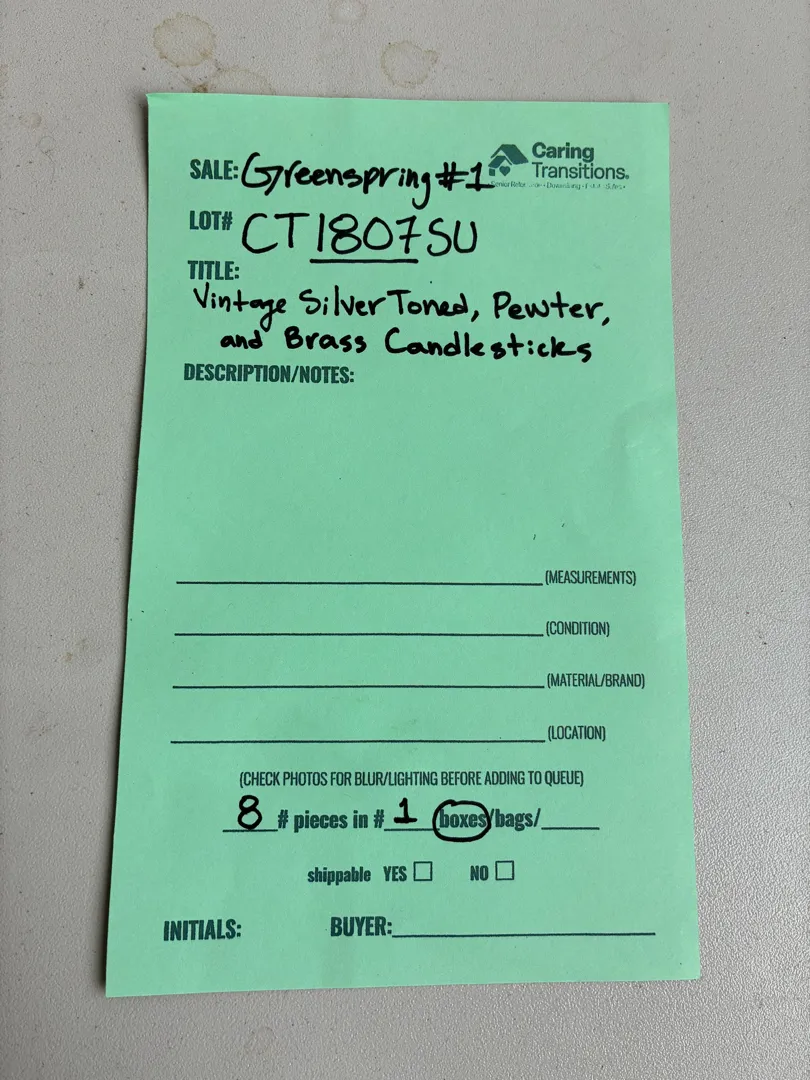 SALE: Greenspring #1
Caring
Transitions®
LOT# CT1807SU
TITLE:
Vintage Silver Toned, Pewter,
and Brass Candlesticks
DESCRIPTION/NOTES:
(MEASUREMENTS)
(CONDITION)
(MATERIAL/BRAND)
(LOCATION)
(CHECK PHOTOS FOR BLUR/LIGHTING BEFORE ADDING TO QUEUE)
8 # pieces in # 1 boxes/bags/
shippable YES NO
INITIALS: BUYER: